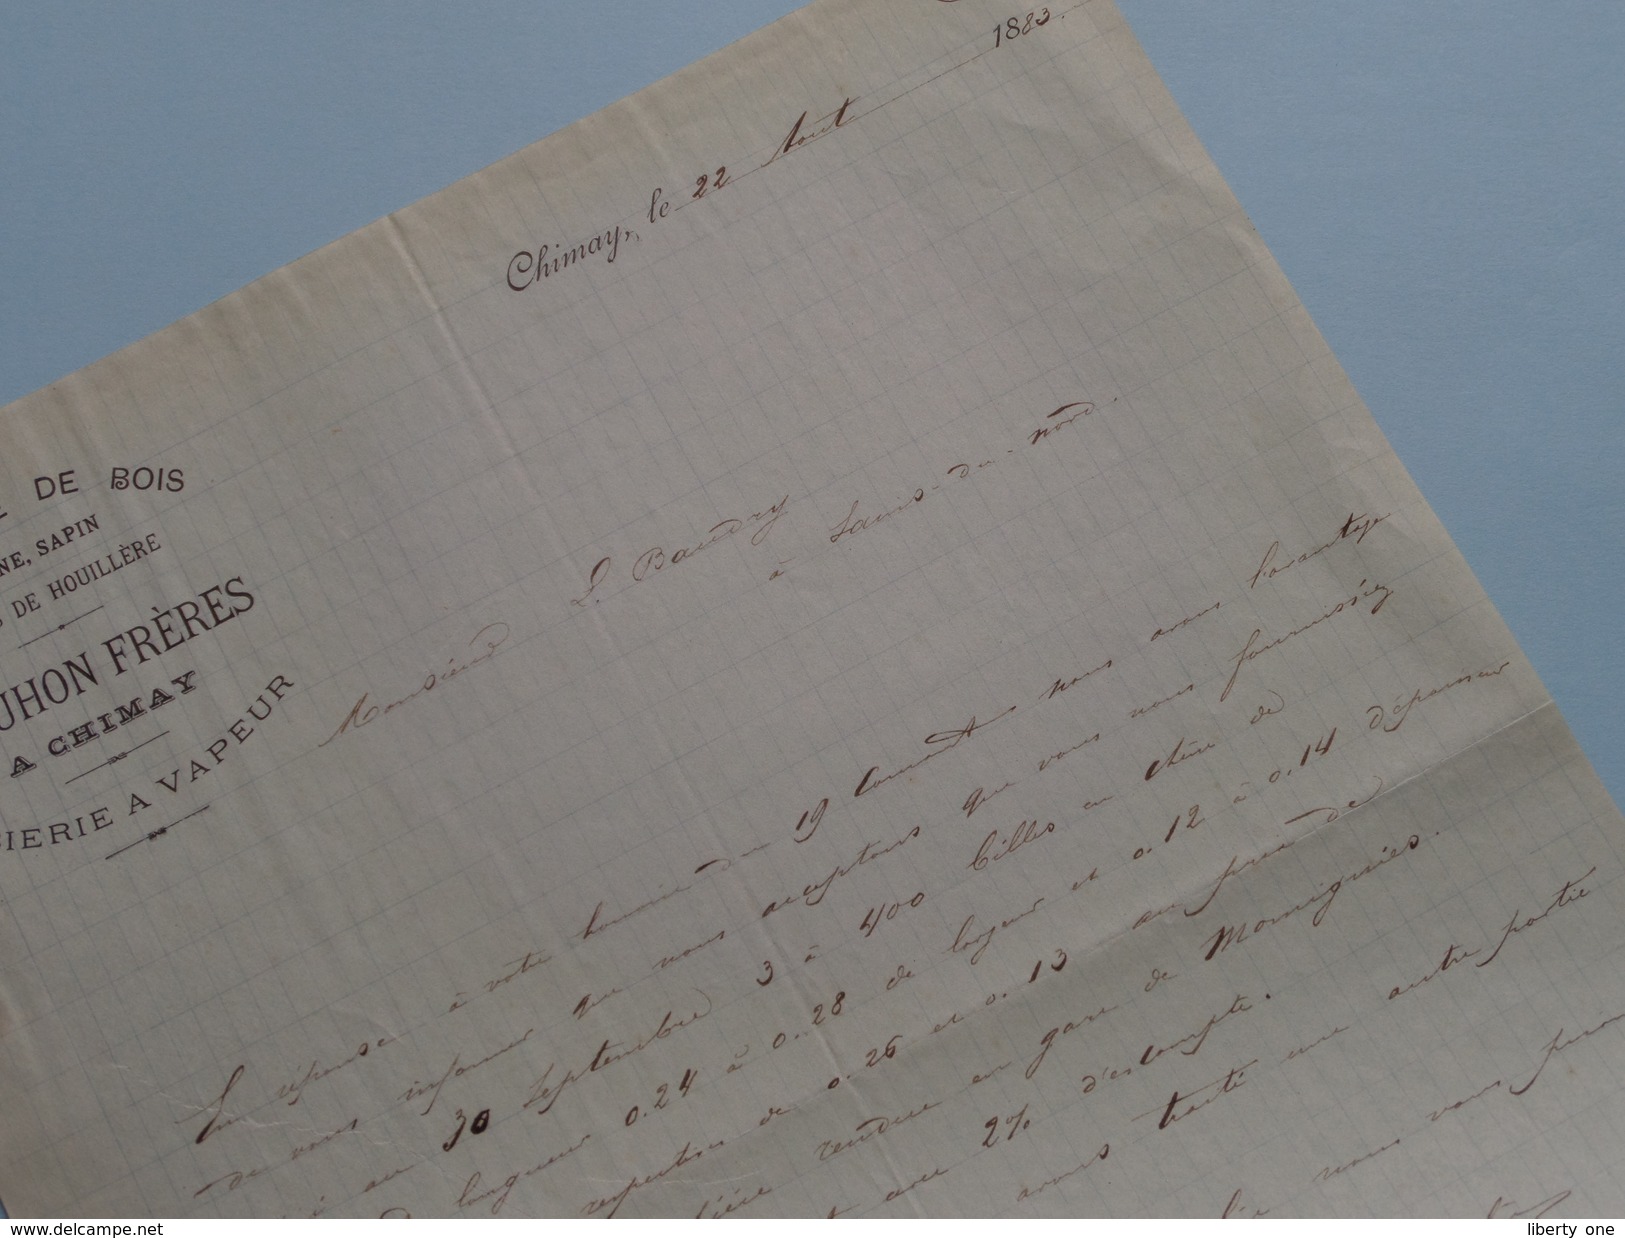 1883.
Chimay, le 22 Aout
DE BOIS
NE, SAPIN
DE HOUILLÈRE
UHON FRÈRES
A CHIMAY
IERIE A VAPEUR
Monsieur L. Baudry
à Sains-du-nord.
En réponse à votre honorée du 19 Courant nous avons l'avantage
de vous informer que nous acceptons que vous nous fournissiez
au 30 Septembre 3 à 400 billes en chêne de
longueur 0.24 à 0.28 de largeur et 0.12 à 0.14 d'épaisseur
respective de 0.26 et 0.13 au prix de
rendue en gare de Momignies.
avec 2% d'escompte.
avons traité une autre partie
nous vous
www.delcampe.net
liberty one